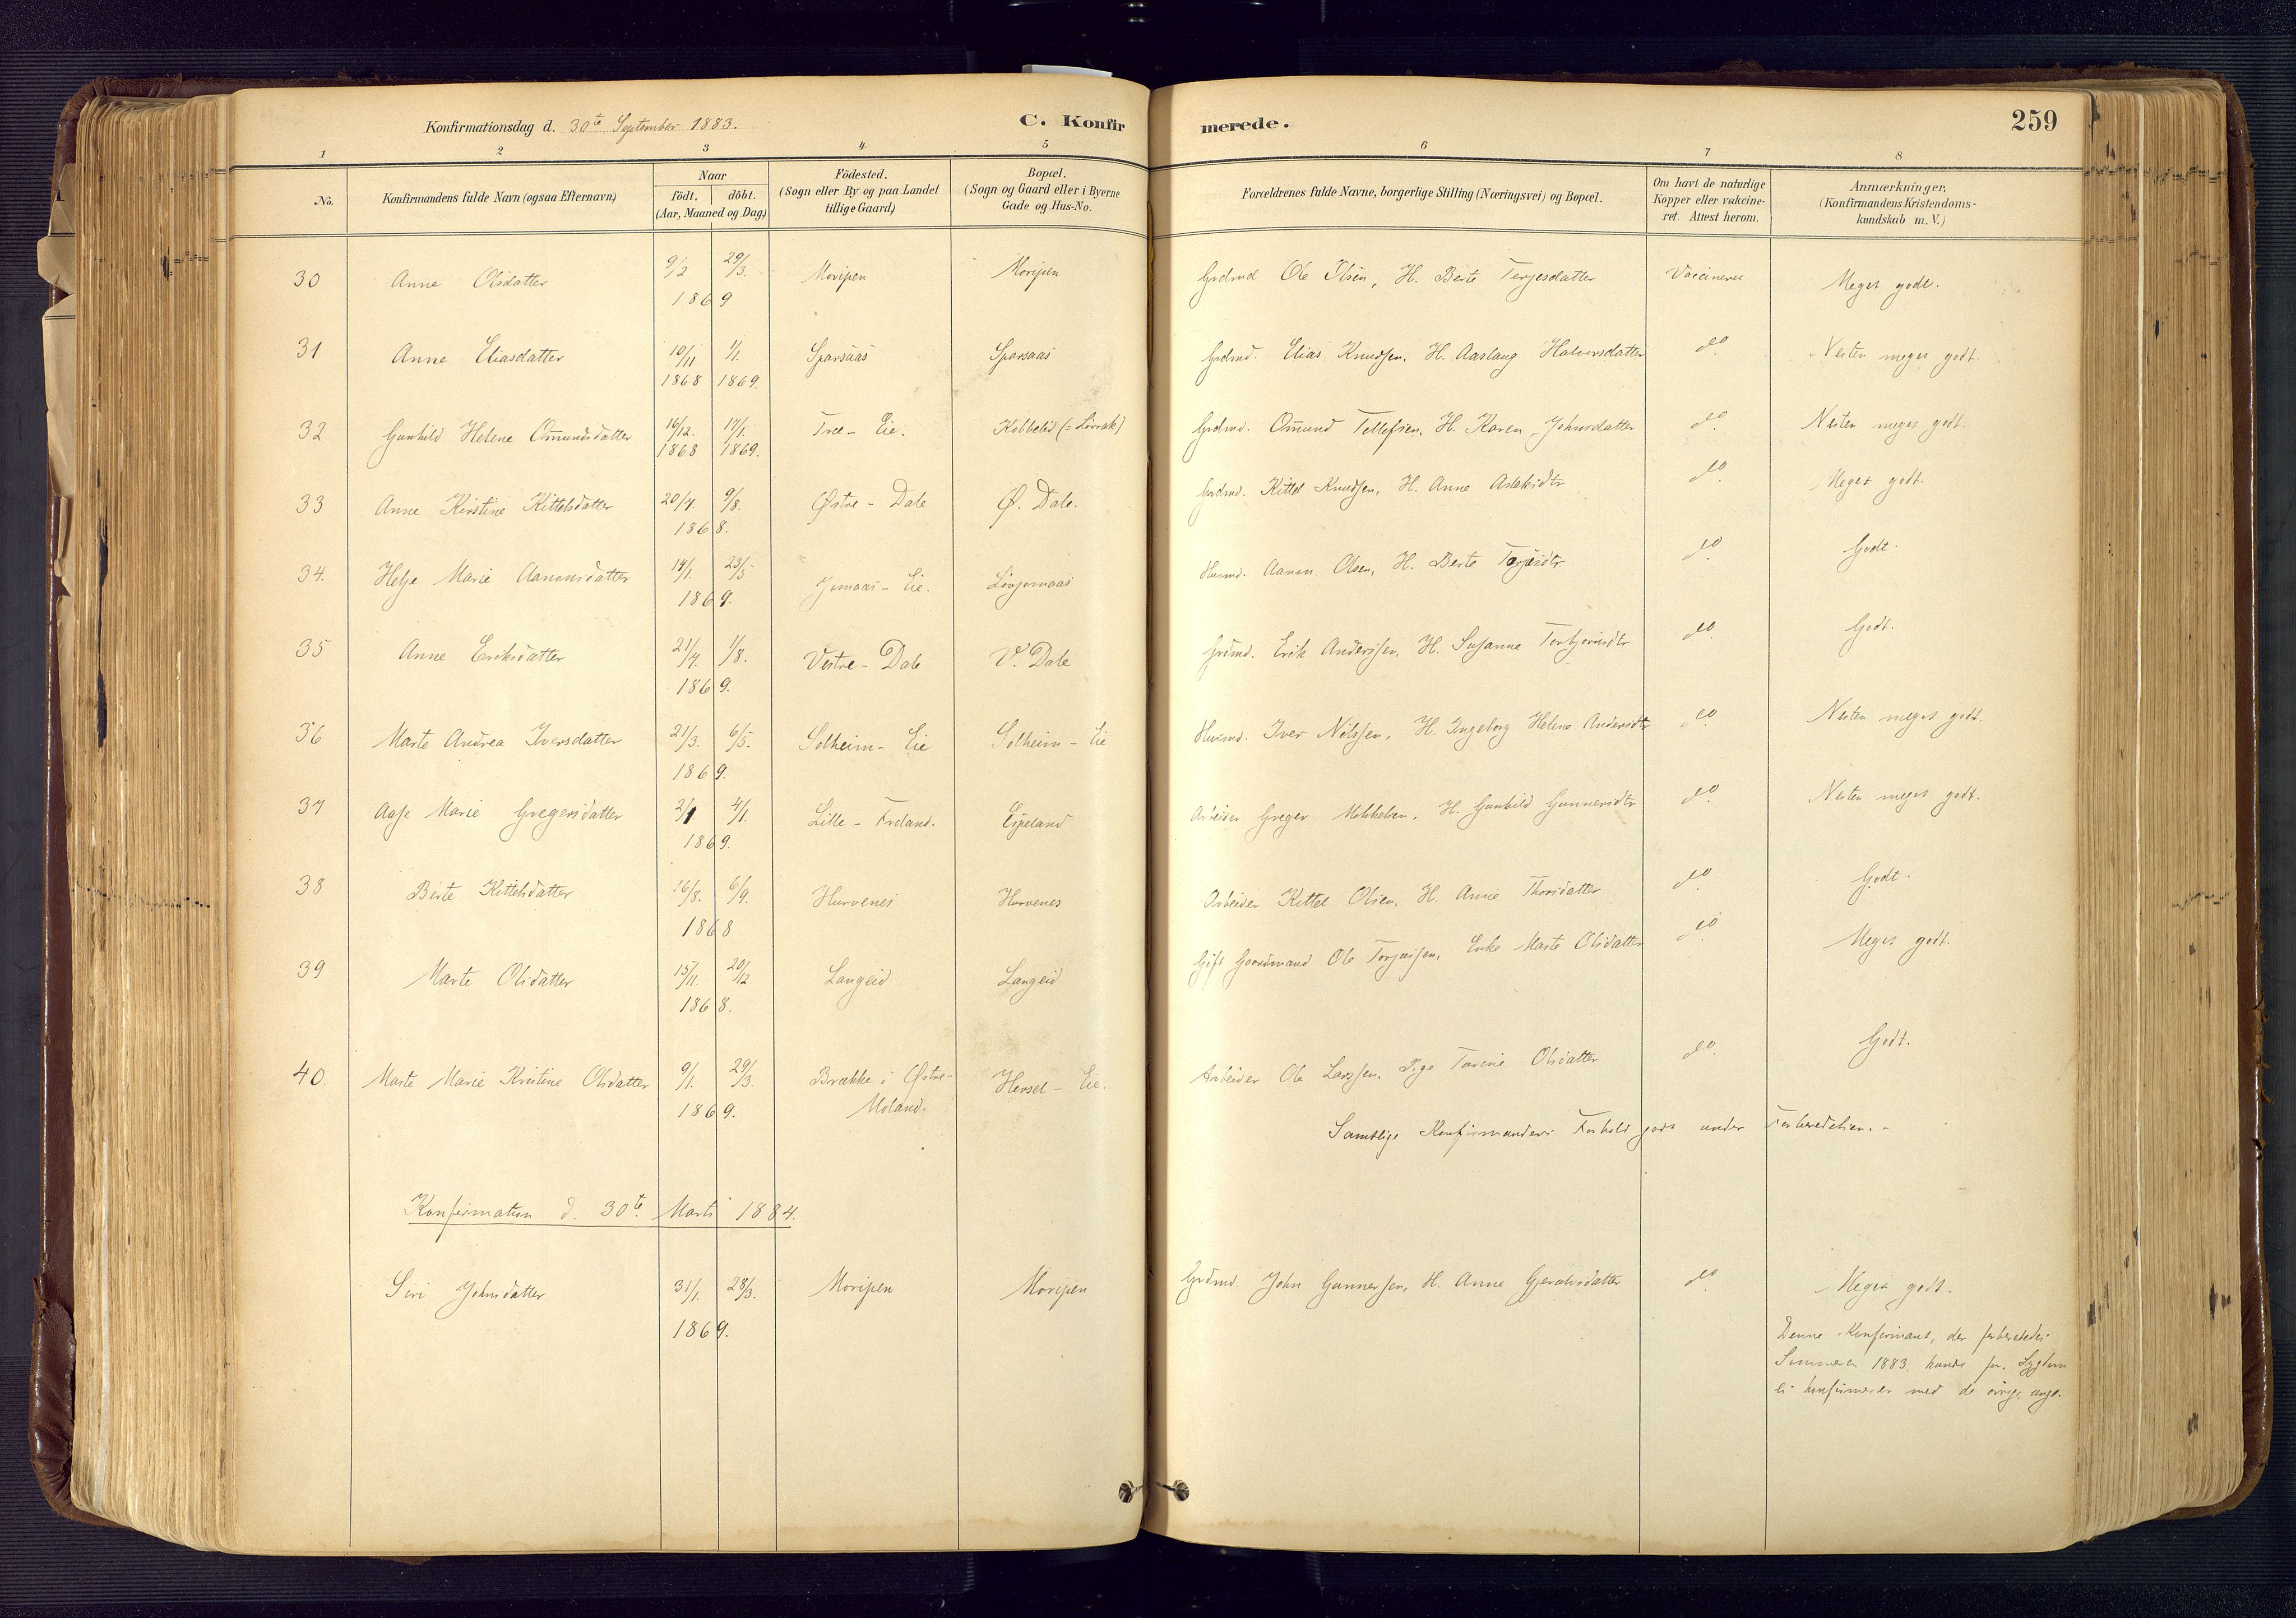 Konfirmationsdag d. 30te September 1883.
C. Konfirmerede.
259
1 2 3 4 5 6 7 8
No.
Konfirmandens fulde Navn (ogsaa Efternavn)
Naar
födt. döbt.
(Aar, Maaned og Dag)
Födested.
(Sogn eller By og paa Landet
tillige Gaard)
Bopæl.
(Sogn og Gaard eller i Byerne
Gade og Hus-No.
Forældrenes fulde Navne, borgerlige Stilling (Næringsvei) og Bopæl.
Om havt de naturlige
Kopper eller vakcine-
ret. Attest herom.
Anmærkninger.
(Konfirmandens Kristendoms-
kundskab m. V.)
30 Anne Olsdatter 9/2 29/3. Moripen Moripen Grdmd Ole Olsen, H. Berte Terjesdatter Vaccineret Meget godt.
1869
31 Anne Eliasdatter 10/11 1/1. Sparsaas Sparsaas Grdmd. Elias Knudsen, H. Aaslaug Halvorsdatter do. Nesten meget godt.
1868 1869.
32 Gunhild Helene Omundsdatter 16/12. 17/1. Tvee-Eie. Kobbelid (= Lövrak) Grdmd. Omund Tellefsen, H. Karen Johnsdatter do. Nesten meget godt.
1868 1869.
33 Anne Kirstine Kittelsdatter 20/7. 9/8. Østre-Dale Ø. Dale. Grdmd. Kittel Knudsen, H. Anne Aslaksdtr do. Meget godt.
1868.
34. Helje Marie Aanonsdatter 14/1. 23/5 Jomaas-Eie. Husmd. Aanon Olsen, H. Berte Torjusdtr do. Godt.
1869.
35 Anne Eriksdatter 21/7. 1/8. Vestre-Dale V. Dale Grdmd. Erik Anderssen, H. Susanne Torbjornsdtr do. Godt.
1869.
36 Marte Andrea Iversdatter 21/3. 6/5. Solheim-Eie Solheim-Eie Husmd. Iver Nilssen, H. Ingeborg Helene Andersdtr do. Nesten meget godt.
1869.
37 Aase Marie Gregersdatter 2/1 4/1. Lille-Froland. Espeland Arbeider Greger Mikkelsen, H. Gunhild Gunnersdtr do. Nesten meget godt.
1869.
38 Berte Kittelsdatter 16/8. 6/9. Hurvenes Hurvenes Arbeider Kittel Olsen, H. Anne Thorsdatter do. Godt.
1868
39 Marte Olsdatter 15/11. 20/12 Langeid Langeid Gift Gaardmand Ole Torjussen, Enke Marte Olsdatter do. Meget godt.
1868.
40. Marte Marie Kristine Olsdatter 9/1. 29/3. Brække i Østre- Hersel-Eie. Arbeider Ole Larssen, Pige Torine Olsdatter do. Godt.
1869. Moland.
Samtlige Konfirmanders Forhold godt under Forberedelsen.-
Konfirmation d. 30te. Marts 1884.
Siri Johnsdatter 31/1. 28/3. Moripen Moripen Grdmd. John Gunnersen, H. Anne Gjerulvsdatter do. Meget godt.
1869.
Denne Konfirmant, der forberededes
Sommeren 1883, kunde for Sygdom
ei konfirmeres med de övrige unge.